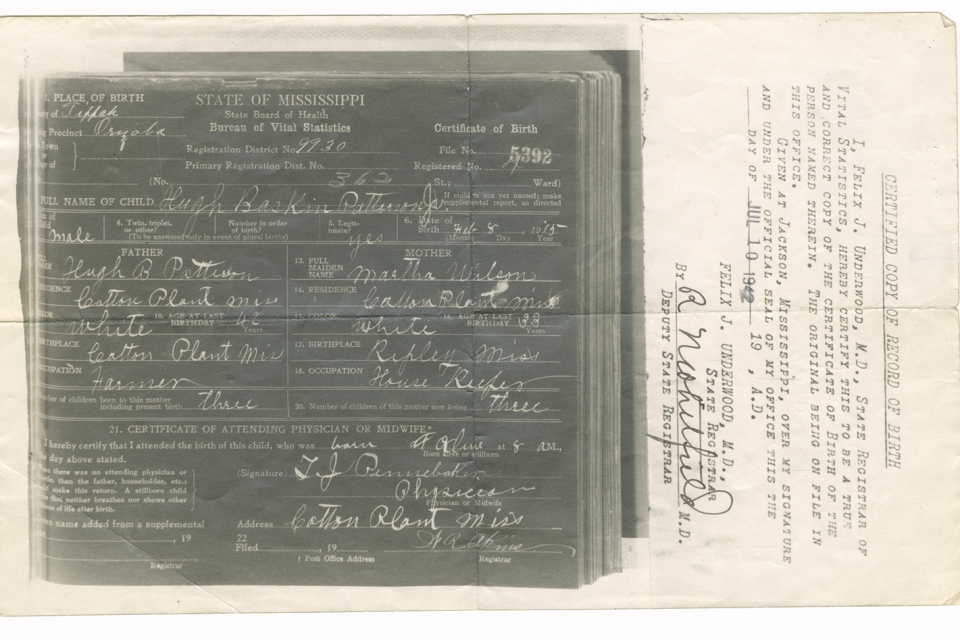 1. PLACE OF BIRTH
STATE OF MISSISSIPPI
ty of Tippah
State Board of Health
Bureau of Vital Statistics
Certificate of Birth
ng Precinct Oryoba
Registration District No. 9930
File No. 5392
Town
Primary Registration Dist. No.
Registered No. 9
age of
(No. 362 St.; Ward)
FULL NAME OF CHILD Hugh Baskin Patterson Jr
If child is not yet named; make supplemental report, as directed
Sex of Child male
4. Twin, triplet, or other?
Number in order of birth?
(To be answered only in event of plural births)
5. Legitimate? yes
6. Date of Birth Feb 8, 1915
(Month) Day Year
FATHER
MOTHER
NAME Hugh B Patterson
13. FULL MAIDEN NAME Martha Wilson
RESIDENCE Cotton Plant Miss
14. RESIDENCE Cotton Plant Miss
COLOR White
10. AGE AT LAST BIRTHDAY 42 Years
15. COLOR White
16. AGE AT LAST BIRTHDAY 33 Years
BIRTHPLACE Cotton Plant Mis
17. BIRTHPLACE Ripley Miss
OCCUPATION Farmer
18. OCCUPATION House Keeper
Number of children born to this mother including present birth three
20. Number of children of this mother now living three
21. CERTIFICATE OF ATTENDING PHYSICIAN OR MIDWIFE*
I hereby certify that I attended the birth of this child, who was born Alive at 8 AM.,
Born alive or stillborn
day above stated.
there was no attending physician or
e, then the father, householder, etc.;
ld make this return. A stillborn child
e that neither breathes nor shows other
of life after birth.
(Signature) T J Pennebaker
Physician
Physician or Midwife
en name added from a supplemental
Address Cotton Plant Miss
, 19
22 Filed , 19
Registrar
† Post Office Address
Registrar
CERTIFIED COPY OF RECORD OF BIRTH
I, FELIX J. UNDERWOOD, M.D., STATE REGISTRAR OF
VITAL STATISTICS, HEREBY CERTIFY THIS TO BE A TRUE
AND CORRECT COPY OF THE CERTIFICATE OF BIRTH OF THE
PERSON NAMED THEREIN. THE ORIGINAL BEING ON FILE IN
THIS OFFICE.
GIVEN AT JACKSON, MISSISSIPPI, OVER MY SIGNATURE
AND UNDER THE OFFICIAL SEAL OF MY OFFICE THIS THE
DAY OF JUL 10 1942 19 , A.D.
FELIX J. UNDERWOOD, M.D.,
STATE REGISTRAR
BY M.D.
DEPUTY STATE REGISTRAR